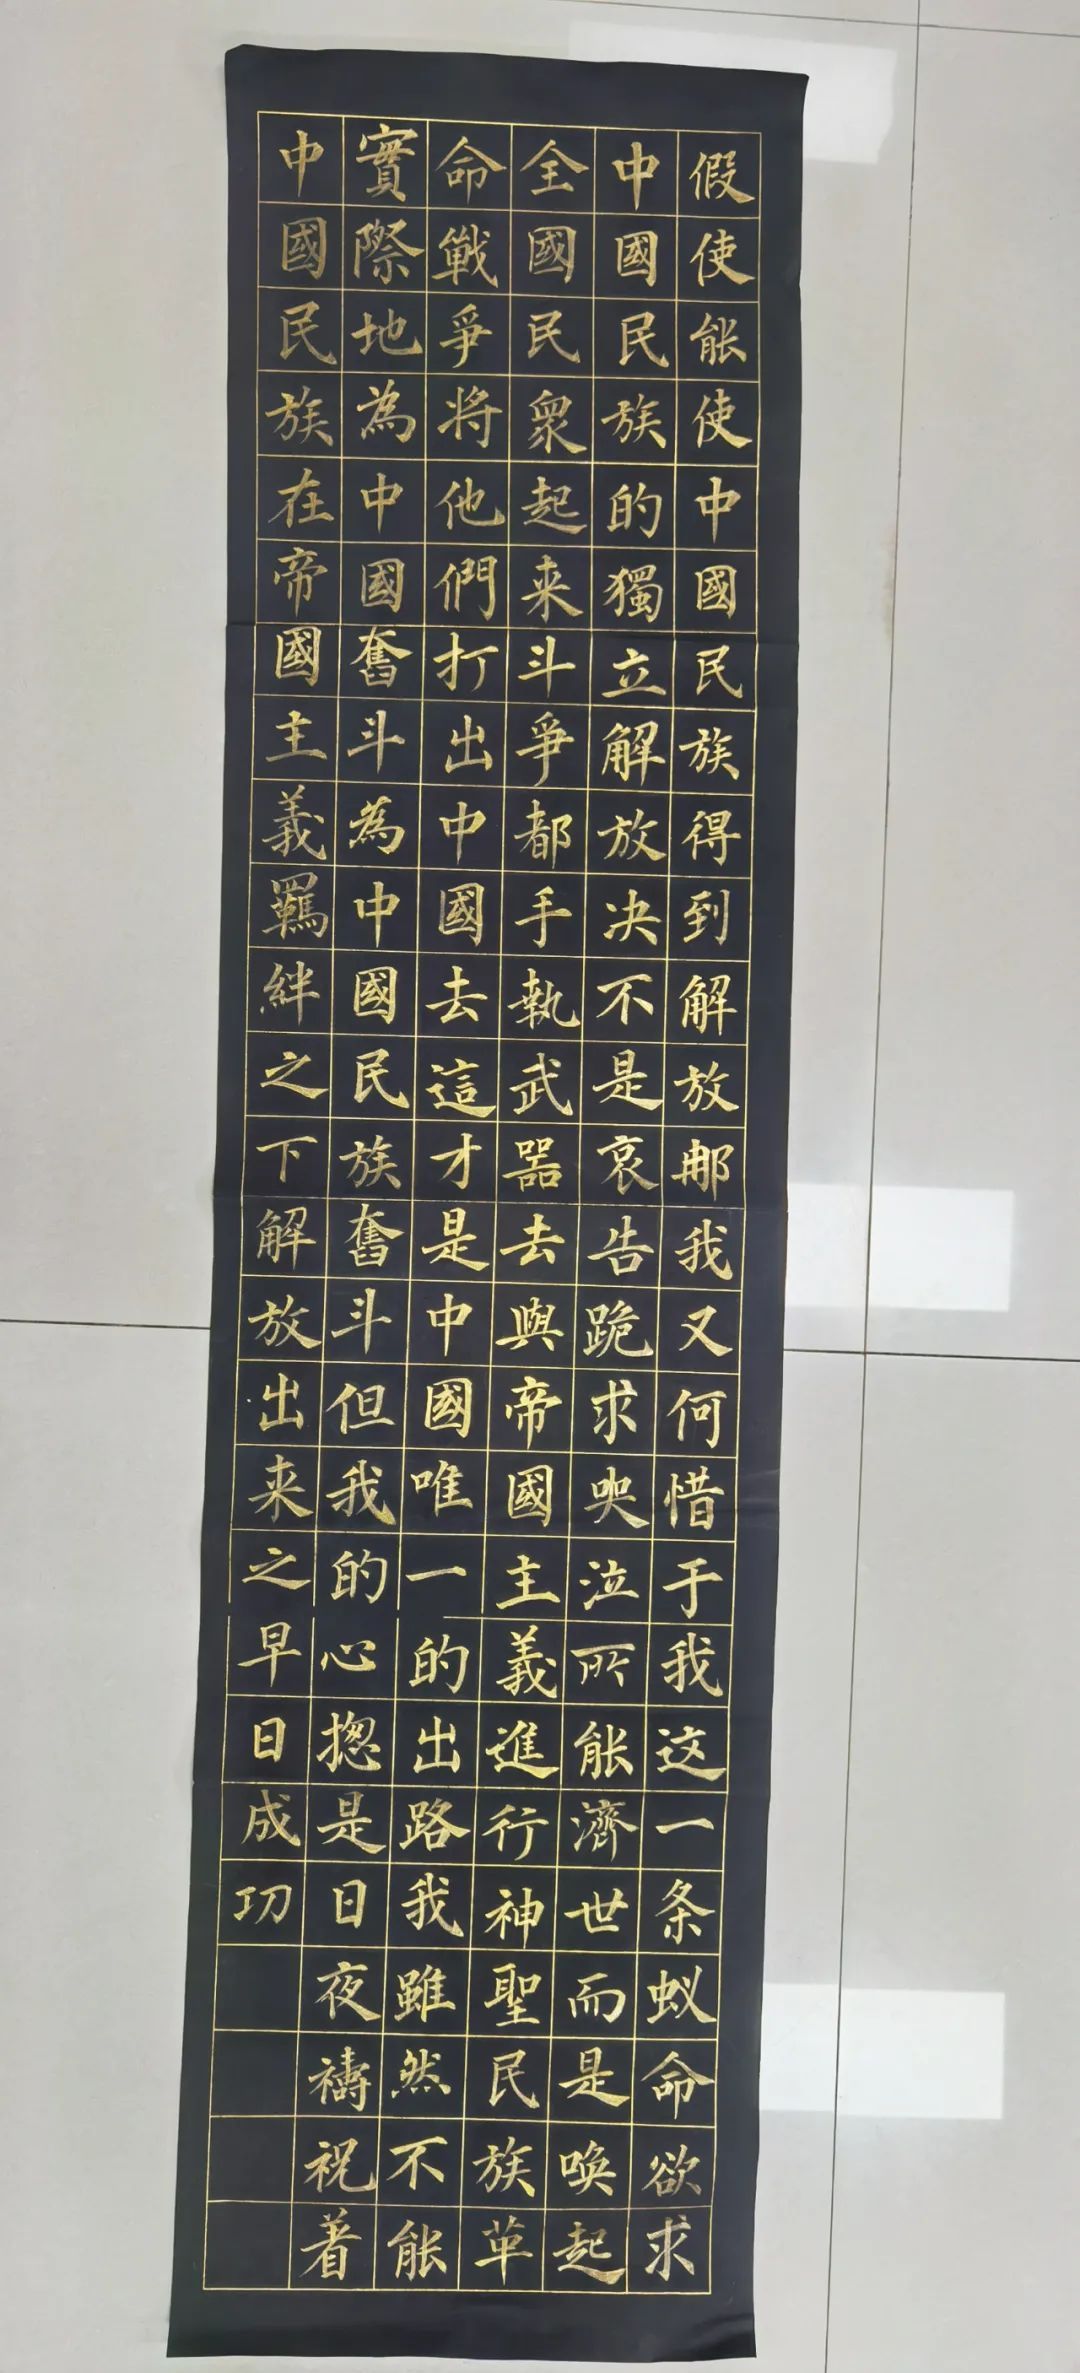 假使能使中國民族得到解放那我又何惜于我这一条蚁命欲求
中國民族的獨立解放决不是哀告跪求哭泣所能濟世而是唤起
全國民衆起来斗爭都手執武器去與帝國主義進行神聖民族革
命戰爭将他們打出中國去這才是中國唯一的出路我雖然不能
實際地為中國奮斗為中國民族奮斗但我的心揔是日夜禱祝着
中國民族在帝國主義羈絆之下解放出来之早日成功